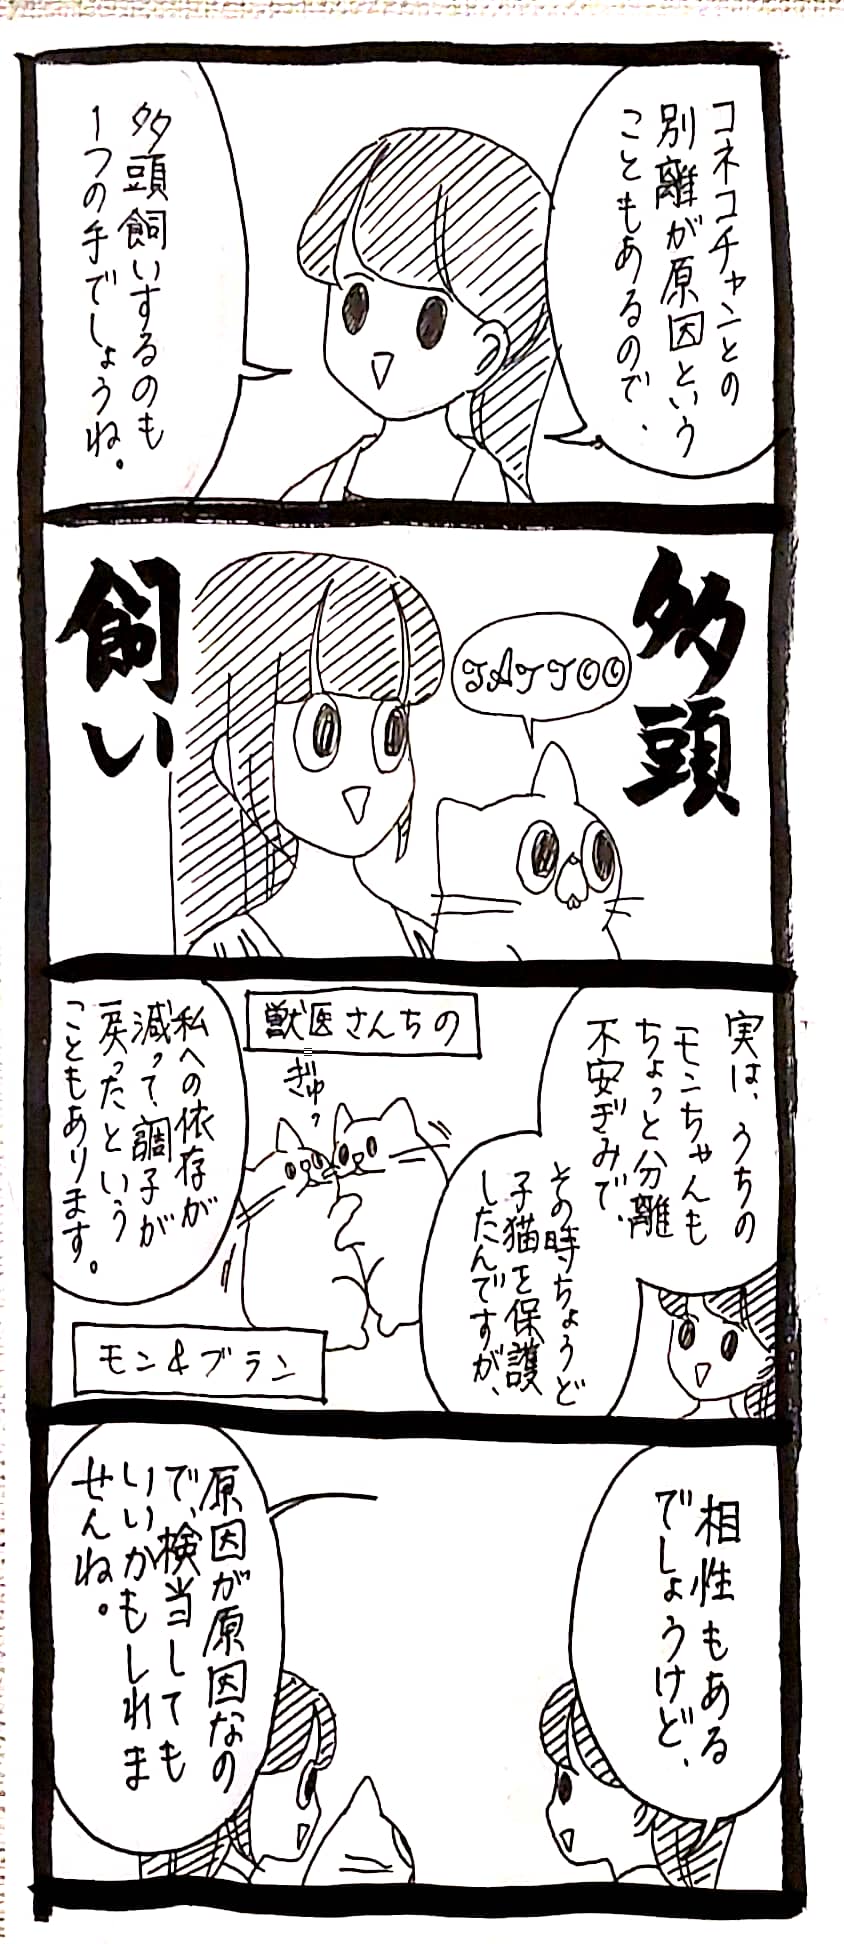 コネコチャンとの
別離が原因という
こともあるので、
多頭飼いするのも
1つの手でしょうね。
多頭
飼い
TATTOO
実は、うちの
モンちゃんも
ちょっと分離
不安ぎみで、
その時ちょうど
子猫を保護
したんですが、
獣医さんちの
ぎゅっ
モン&ブラン
私への依存が
減って、調子が
戻ったという
こともあります。
相性もある
でしょうけど、
原因が原因なの
で、検当しても
いいかもしれま
せんね。